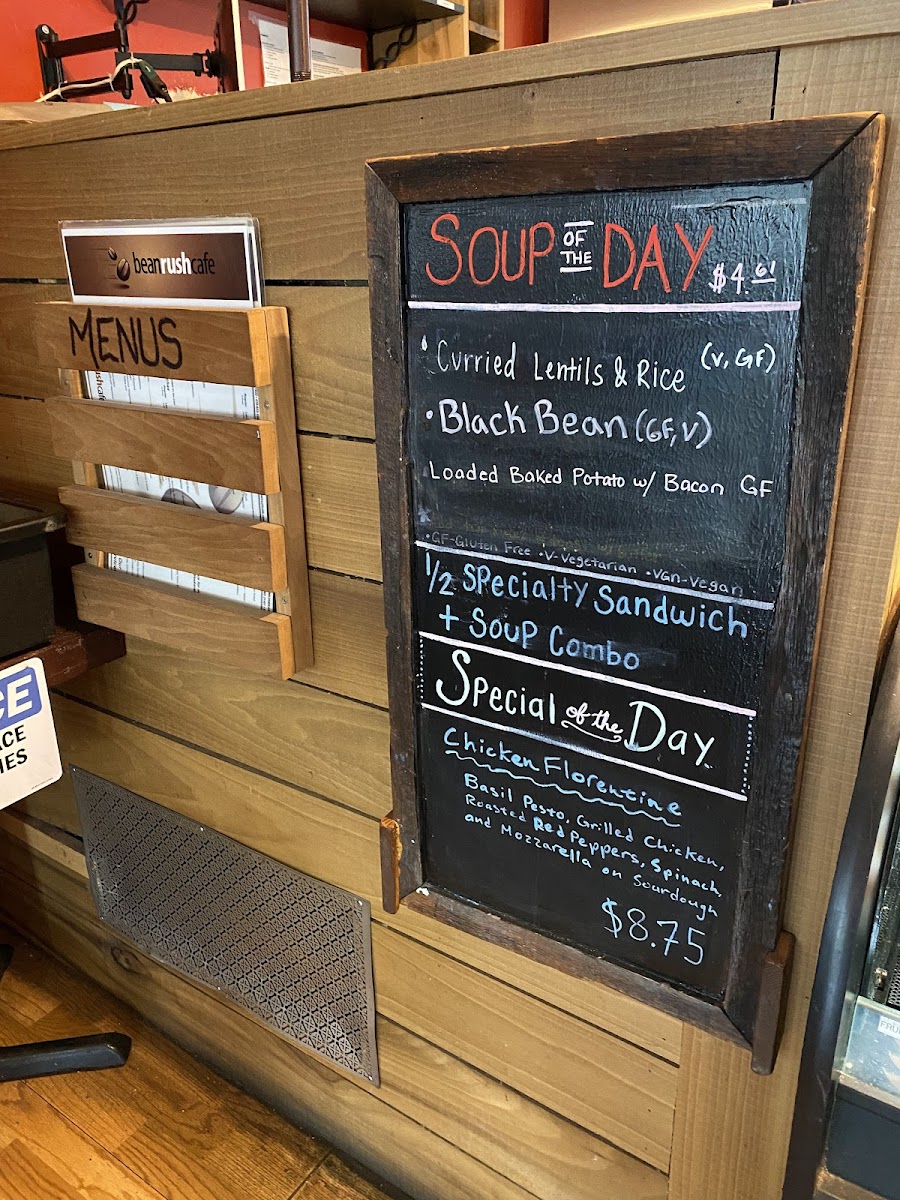 beanrushcafe
MENUS
CE
ACE
IES
SOUP OF THE DAY $4.61
• Curried Lentils & Rice (V, GF)
• Black Bean (GF, V)
Loaded Baked Potato w/ Bacon GF
•GF-Gluten Free •V-Vegetarian •VGN-Vegan
1/2 Specialty Sandwich
+ Soup Combo
Special of the Day
Chicken Florentine
Basil Pesto, Grilled Chicken,
Roasted Red Peppers, Spinach,
and Mozzarella on Sourdough
$8.75